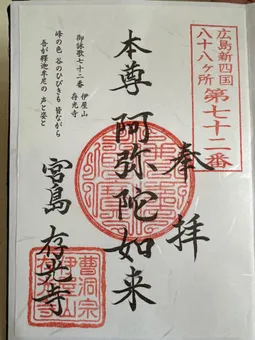 広島新四国
八十八ヶ所 第七十二番
奉拝
本尊 阿弥陀如来
宮島 存光寺
御詠歌七十二番 伊屋山
存光寺
峰の色 谷のひびきも 皆ながら
吾が釋迦牟尼の 声と姿と
曹洞宗